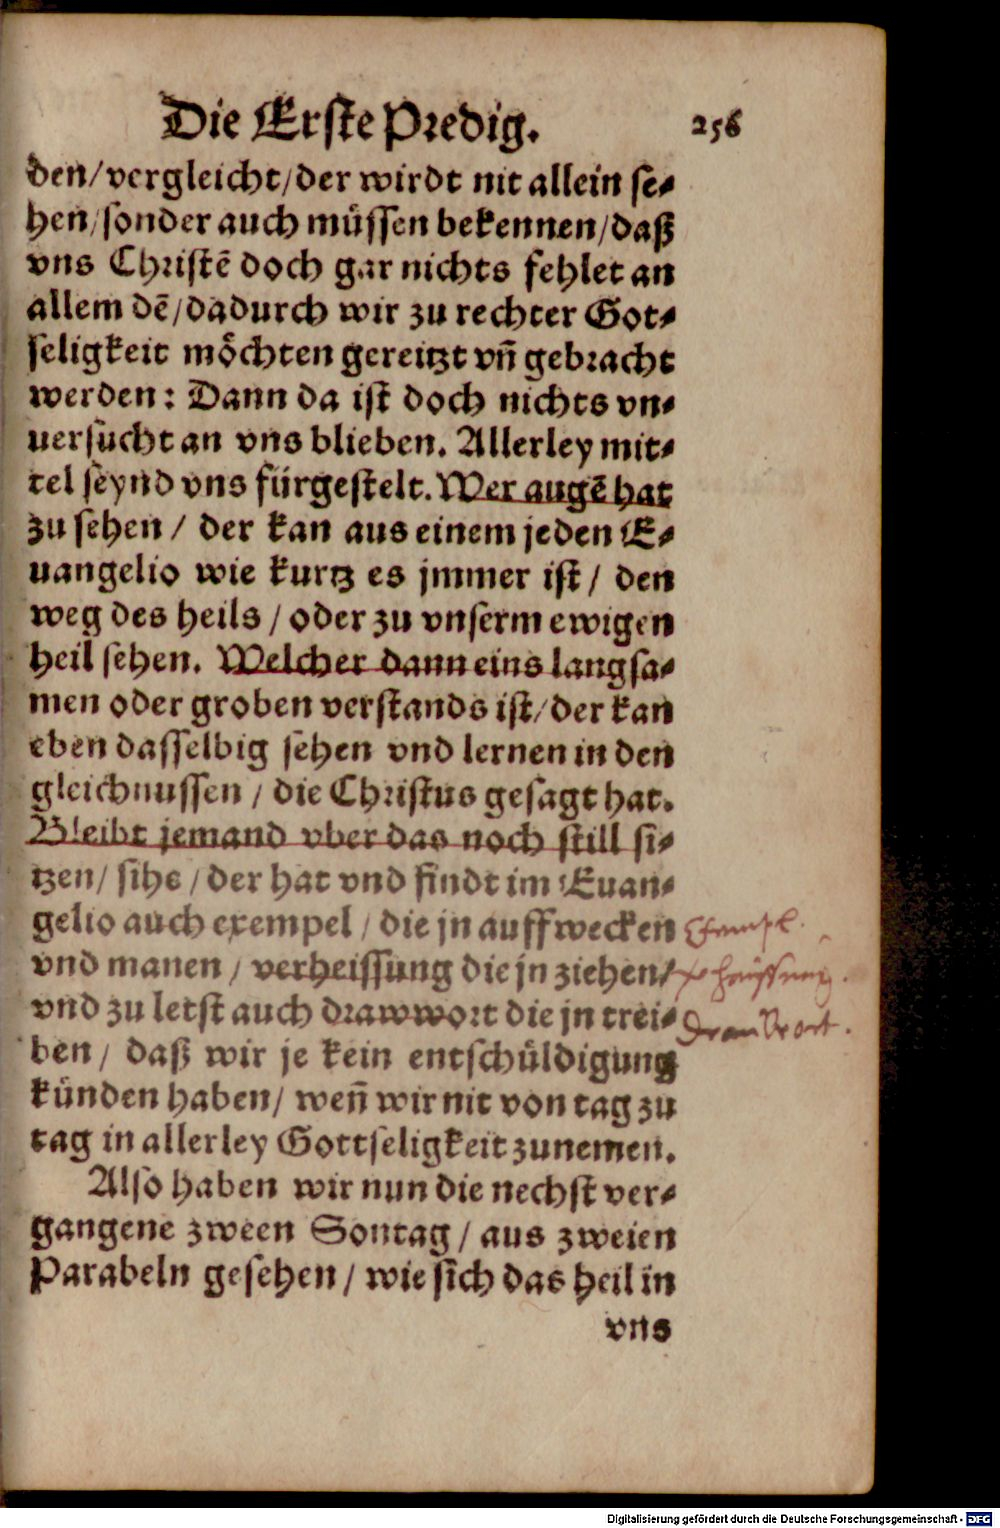 Die Erste Predig. 256
den/vergleicht/der wirdt nit allein se⸗
hen/sonder auch müssen bekennen/daß
vns Christẽ doch gar nichts fehlet an
allem dẽ/dadurch wir zu rechter Got⸗
seligkeit möchten gereitzt vñ gebracht
werden: Dann da ist doch nichts vn⸗
uersücht an vns blieben. Allerley mit⸗
tel seynd vns fürgestelt. Wer augẽ hat
zu sehen / der kan aus einem jeden E⸗
uangelio wie kurtz es jmmer ist / den
weg des heils / oder zu vnserm ewigen
heil sehen. Welcher dann eins langsa⸗
men oder groben verstands ist/der kan
eben dasselbig sehen vnd lernen in den
gleichnussen / die Christus gesagt hat.
Bleibt jemand vber das noch still si⸗
tzen/ sihe /der hat vnd findt im Euan⸗
gelio auch exempel / die jn auffwecken
Exempel.
vnd manen / verheissung die jn ziehen/
verheissung.
vnd zu letst auch drawwort die jn trei⸗
Drauwort.
ben / daß wir je kein entschüldigung
künden haben/ weñ wir nit von tag zu
tag in allerley Gottseligkeit zunemen.
Also haben wir nun die nechst ver⸗
gangene zween Sontag / aus zweien
Parabeln gesehen / wie sich das heil in
vns
Digitalisierung gefördert durch die Deutsche Forschungsgemeinschaft - DFG